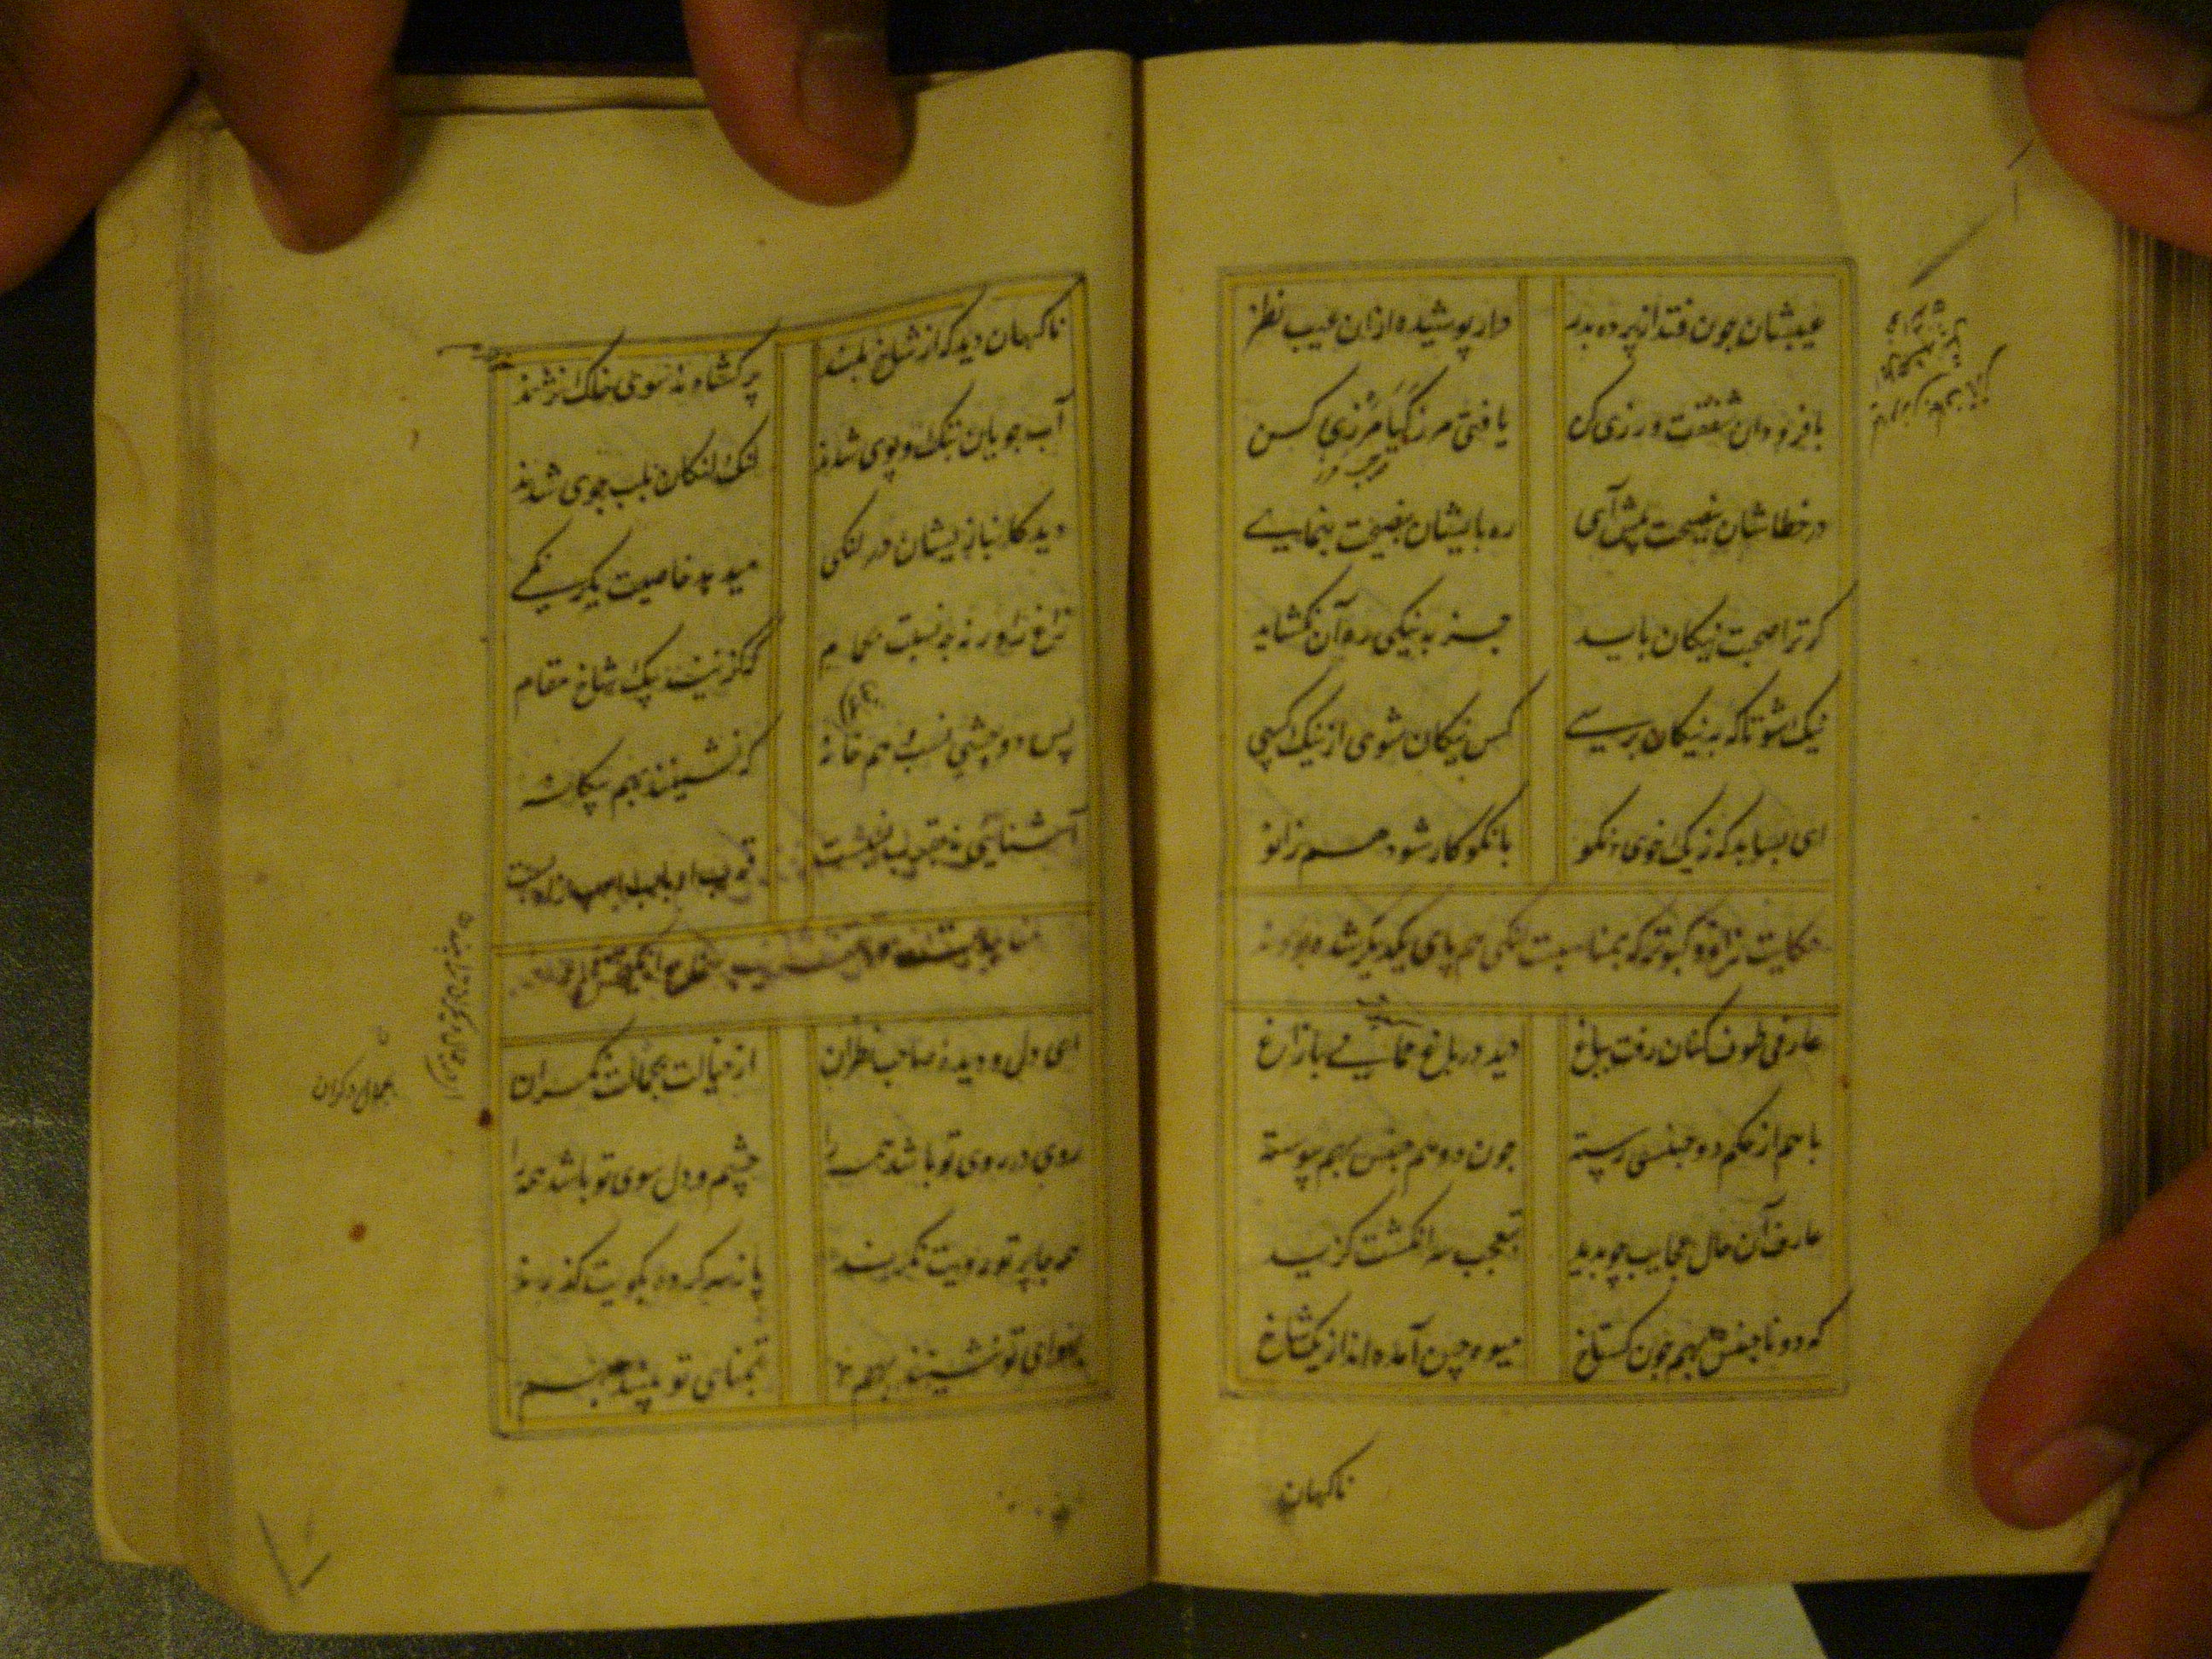 عیبشان چون فتد از پرده بدر دار پوشیده ازان عیب نظر
با فرودان شفقت ورزی کن یافتی مرز کیا مرزی کن
در خطاشان بنصیحت پیش آی ره بایشان بنصیحت بنمایے
کر ترا صحبت نیکان باید جز به نیکی ره آن نکشاید
نیک شو تا که به نیکان برسے کس نیکان شوی از نیک کسی
ای بسا بد که ز یک خوی نکو با نکوکار شود هم زانو
حکایت زاغ و کبوتر که بمناسبت لنکی هم پای یکدیکر شده بودند
عارفی طوف کنان رفت بباغ دید در باغ حمامے با زاغ
با هم از حکم دو جنسی رسته چون دو هم جنس بهم پیوسته
عارف آن حال عجایب چو بدید بتعجب سر انکشت کزید
که دو ناجنس بهم چون کستاخ میوه چین آمده اند از یک شاخ
ناکهان
ناکهان دید که از شاخ بلند پر کشادند سوی خاک نژند
آب جویان بتک و پوی شدند لنک لنکان بلب جوی شدند
دید کانباز یشان در لنکی میدهد خاصیت یکرنکے
زاغ را ورنه چه نسبت بحمام که کزینند بیک شاخ مقام
پس دو چشمی نسب و هم خانه که نشینند بهم بیکانه
آشنایی نه بقرب بدنست
ای دل و دیده صاحب نظران از خیالت بجمالت نکران
روی در روی تو باشد همه را چشم و دل سوی تو باشد همه را
هر جا پرتو رویت نکرند پا ز سر کرده بکویت کذرند
بهوای تو نشینند بهم بتمنای تو
بجمال دکران